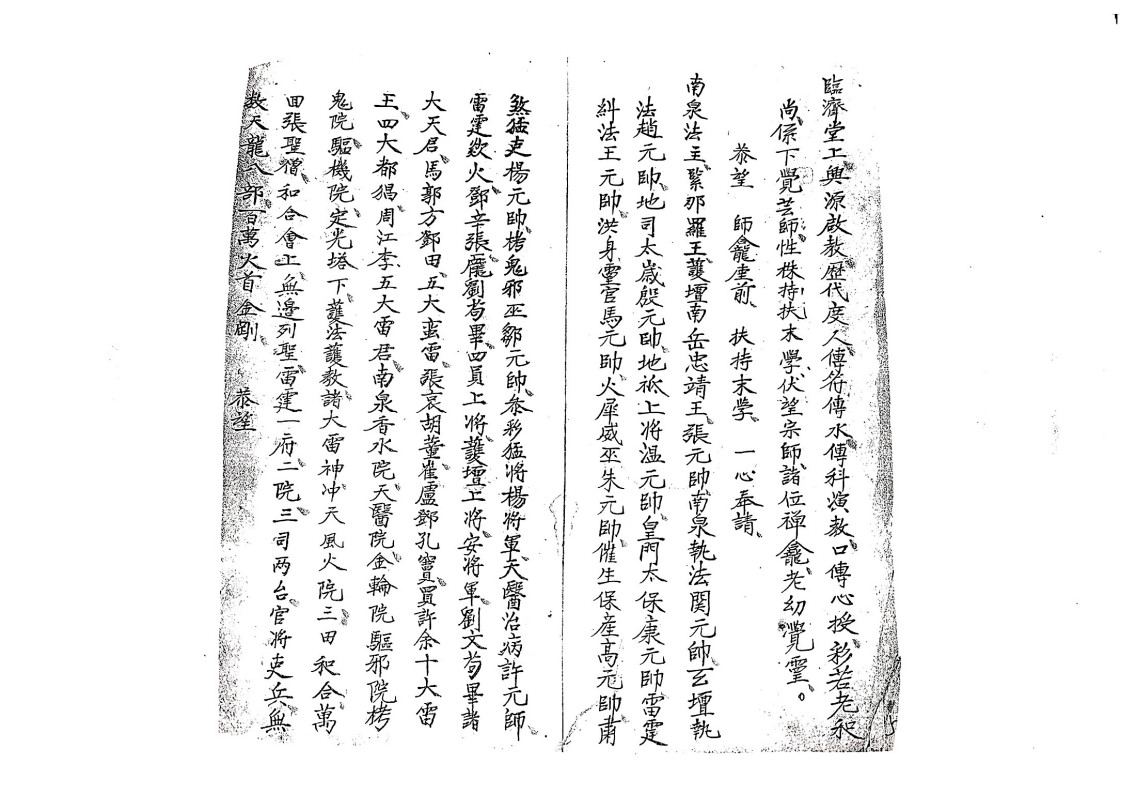 臨濟堂上興源啟教歷代度人傳符傳水傳科演教口傳心授彩若老和
尚係下覺芸師性株持扶末學伏望宗師諸位禅龕老幼覺霊。
恭望　師龕座前　扶持末學　一心奉請
南泉法主緊那羅王護壇南岳忠靖王張元帥南泉執法関元帥玄壇執
法趙元帥地司太歲殷元帥地祇上將温元帥皇門太保康元帥雷霆
糾法王元帥洪身霊官馬元帥火犀威巫朱元帥催生保産高元帥肅
煞猛吏楊元帥栲鬼邪巫鄒元帥恭彩猛将楊將軍天醫治病許元師
雷霆欻火鄧辛張龐劉茍畢四員上將護壇上將安將軍劉文茍畢諸
大天君馬郭方鄧田五大蛮雷張袁胡董崔盧鄧孔竇買許余十大雷
王四大都猖周江李五大雷君南泉香水院天醫院金輪院驅邪院栲
鬼院驅機院定光塔下護法護教諸大雷神冲天風火院三田和合萬
田張聖僧和合會上無邉列聖雷霆一府二院三司两台官将吏兵無
数天龍八部百萬火首金剛　恭望